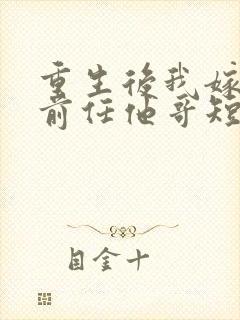 重生後我嫁
前任他哥短
目金十